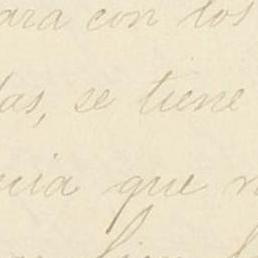 ara con los
das, se tiene
ncia que n